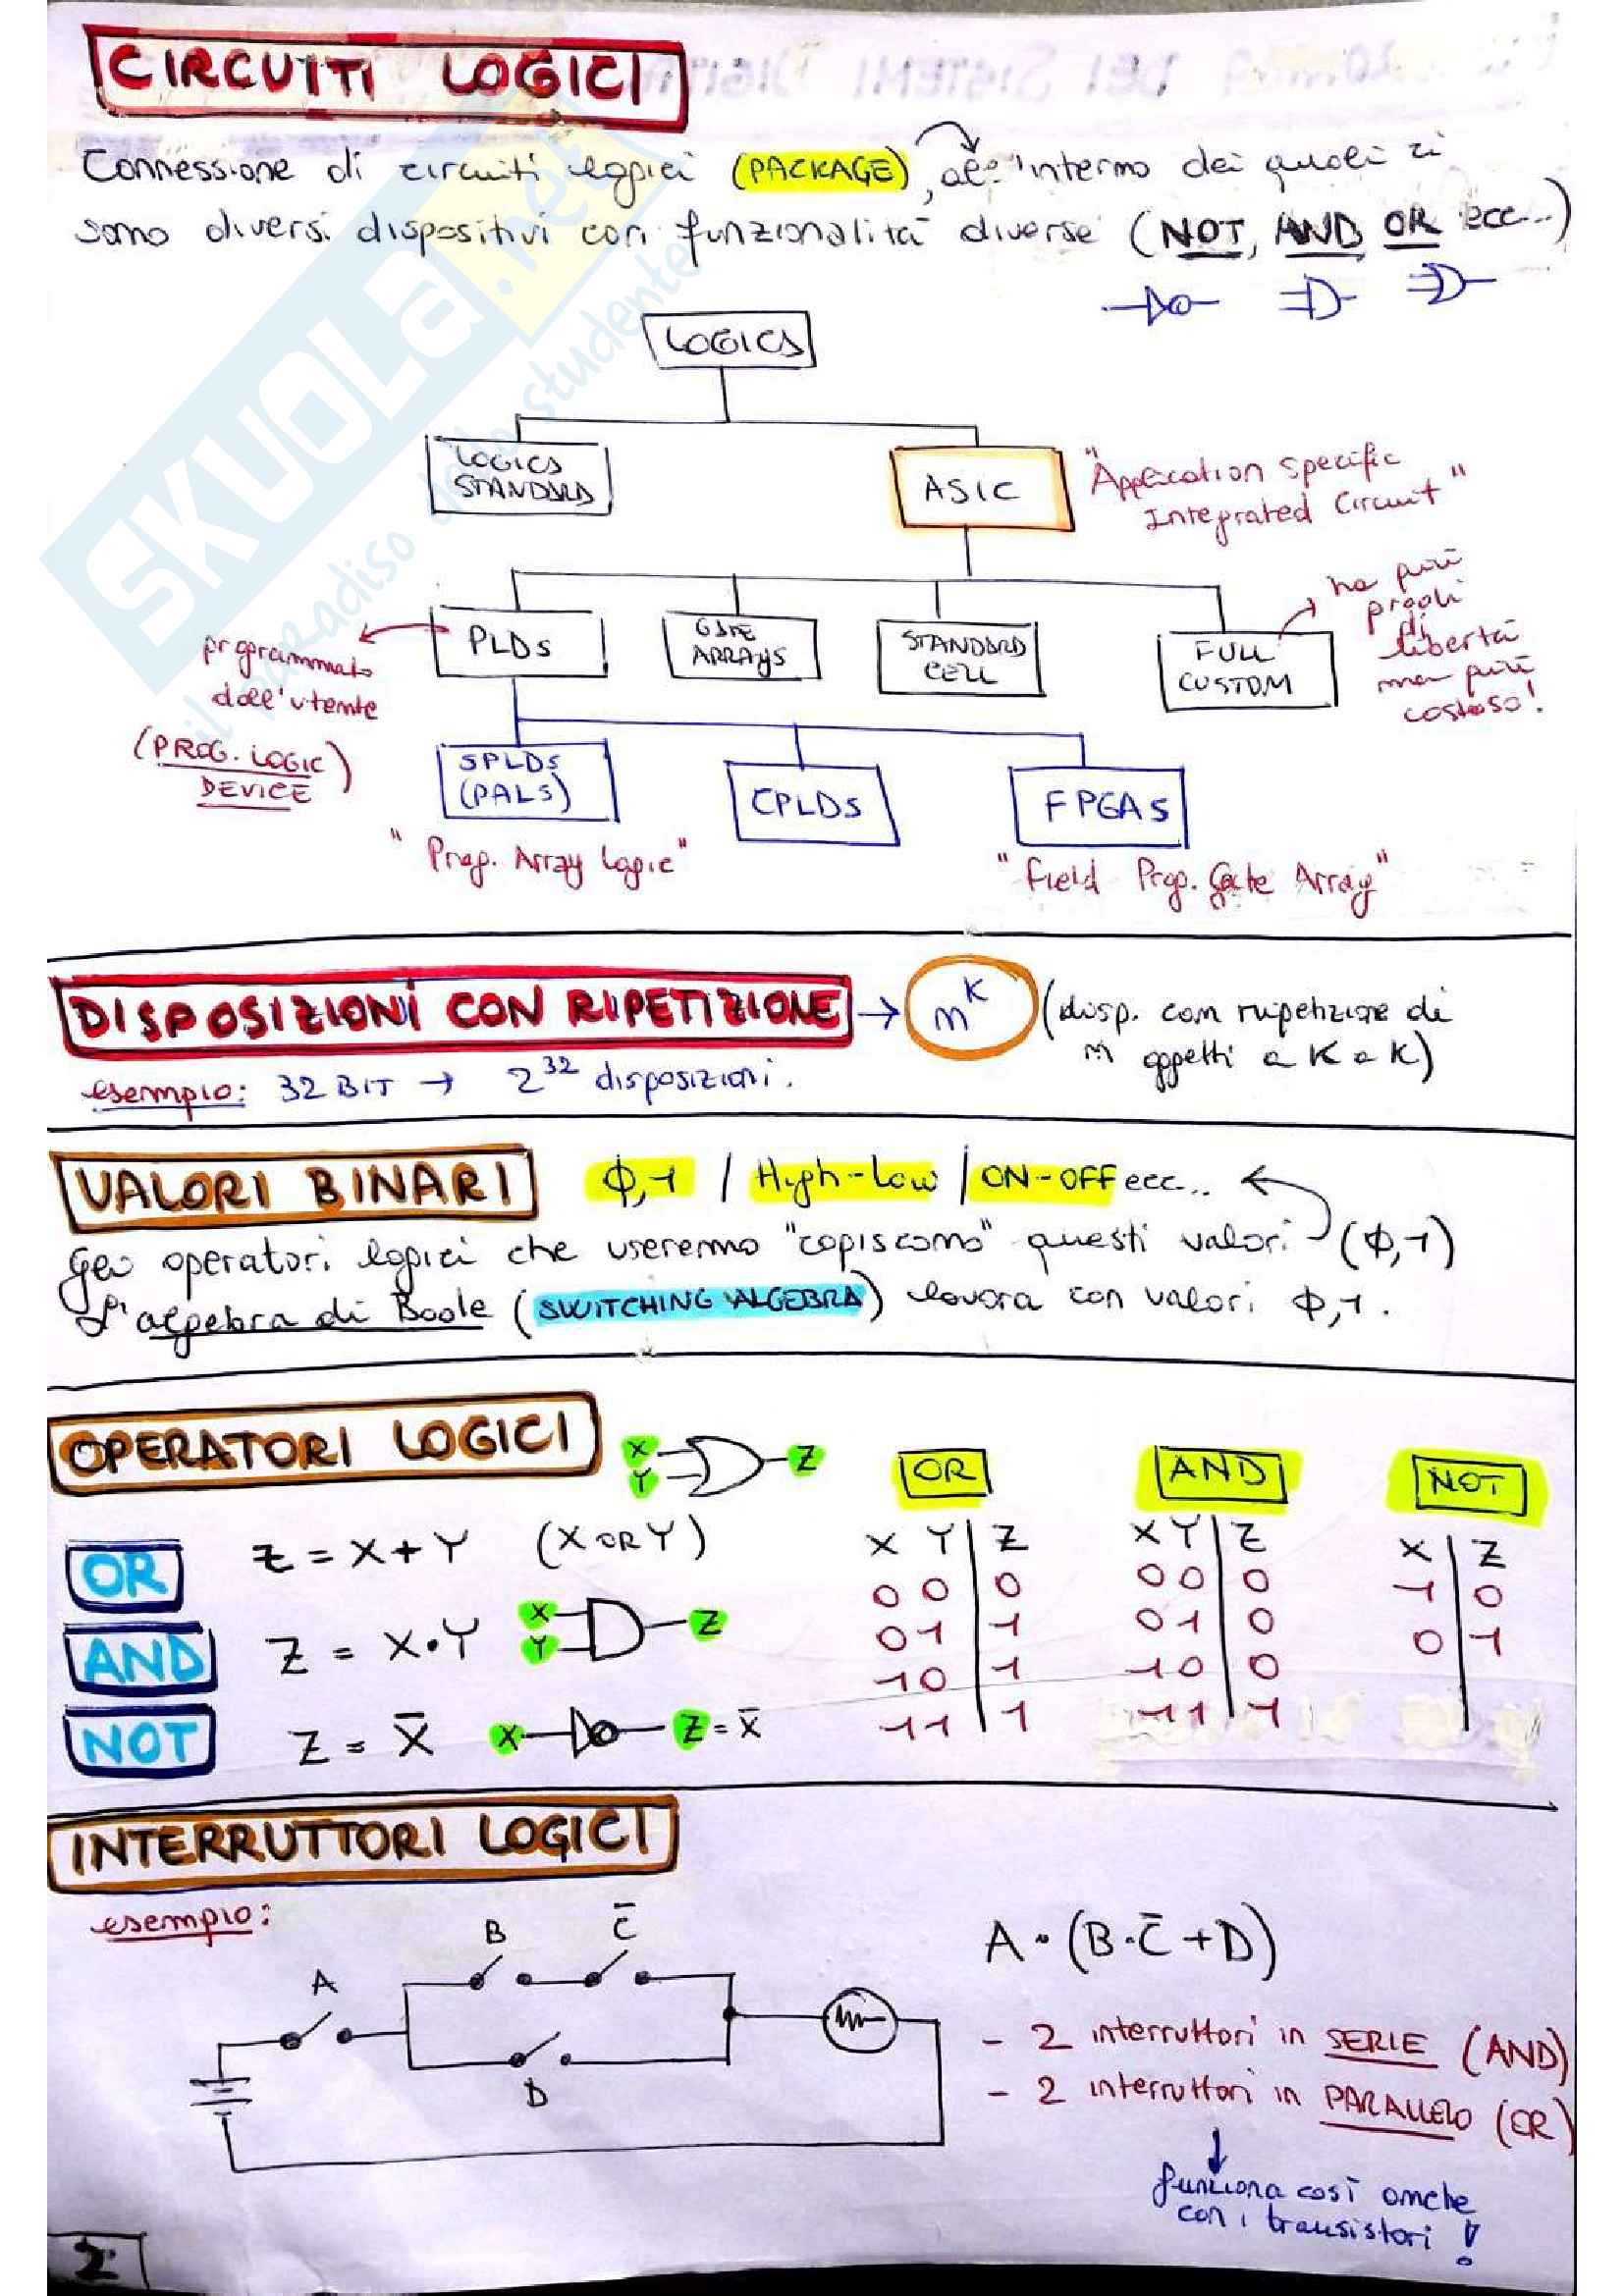 CIRCUITI LOGICI
Connessione di circuiti logici (PACKAGE), all'interno dei quali ci
sono diversi dispositivi con funzionalità diverse (NOT, AND, OR ecc...)
LOGICS
LOGICS STANDARD
ASIC
"Application Specific
Integrated Circuit"
PLDs
GATE ARRAYS
STANDARD CELL
FULL CUSTOM
ha più
gradi
di
libertà
ma più
costoso!
programmato
dall'utente
(PROG. LOGIC
DEVICE)
SPLDs
(PALs)
CPLDs
FPGAs
"Prog. Array Logic"
"Field Prog. Gate Array"
DISPOSIZIONI CON RIPETIZIONE → n^K (disp. con ripetizione di
n oggetti a K a K)
esempio: 32 BIT → 2^32 disposizioni.
VALORI BINARI φ,1 / High-Low / ON-OFF ecc..
Gli operatori logici che useremo "capiscono" questi valori (φ,1)
L'algebra di Boole (SWITCHING ALGEBRA) lavora con valori φ,1.
OPERATORI LOGICI
X
Y
Z
OR
AND
NOT
OR Z = X + Y (X OR Y)
AND Z = X·Y
X
Y
Z
NOT Z = X̄
X
Z = X̄
X Y | Z
0 0 | 0
0 1 | 1
1 0 | 1
1 1 | 1
X Y | Z
0 0 | 0
0 1 | 0
1 0 | 0
1 1 | 1
X | Z
1 | 0
0 | 1
INTERRUTTORI LOGICI
esempio:
A
B
C̄
D
A·(B·C̄+D)
- 2 interruttori in SERIE (AND)
- 2 interruttori in PARALLELO (OR)
funziona così anche
con i transistori!
2
SKUOLA.net
il paradiso dello studente